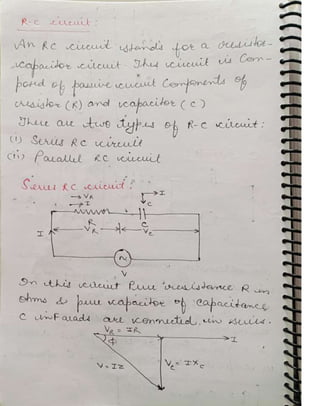 R-C circuit:
An RC circuit stands for a resistor-
capacitor circuit This circuit is Com-
posed of passive circuit Components of
resistor (R) and capacitor (C)
There are two types of R-C circuit:
(i) Series RC circuit
(ii) Parallel RC circuit
Series RC circuit:
VR
I
I
VC
R
C
I
VR
VC
V
In this circuit Pure resistance R in
ohms & pure capacitor of capacitance
C in Farads are connected in series.
VR = IR
I
φ
V = IZ
VC = IXC